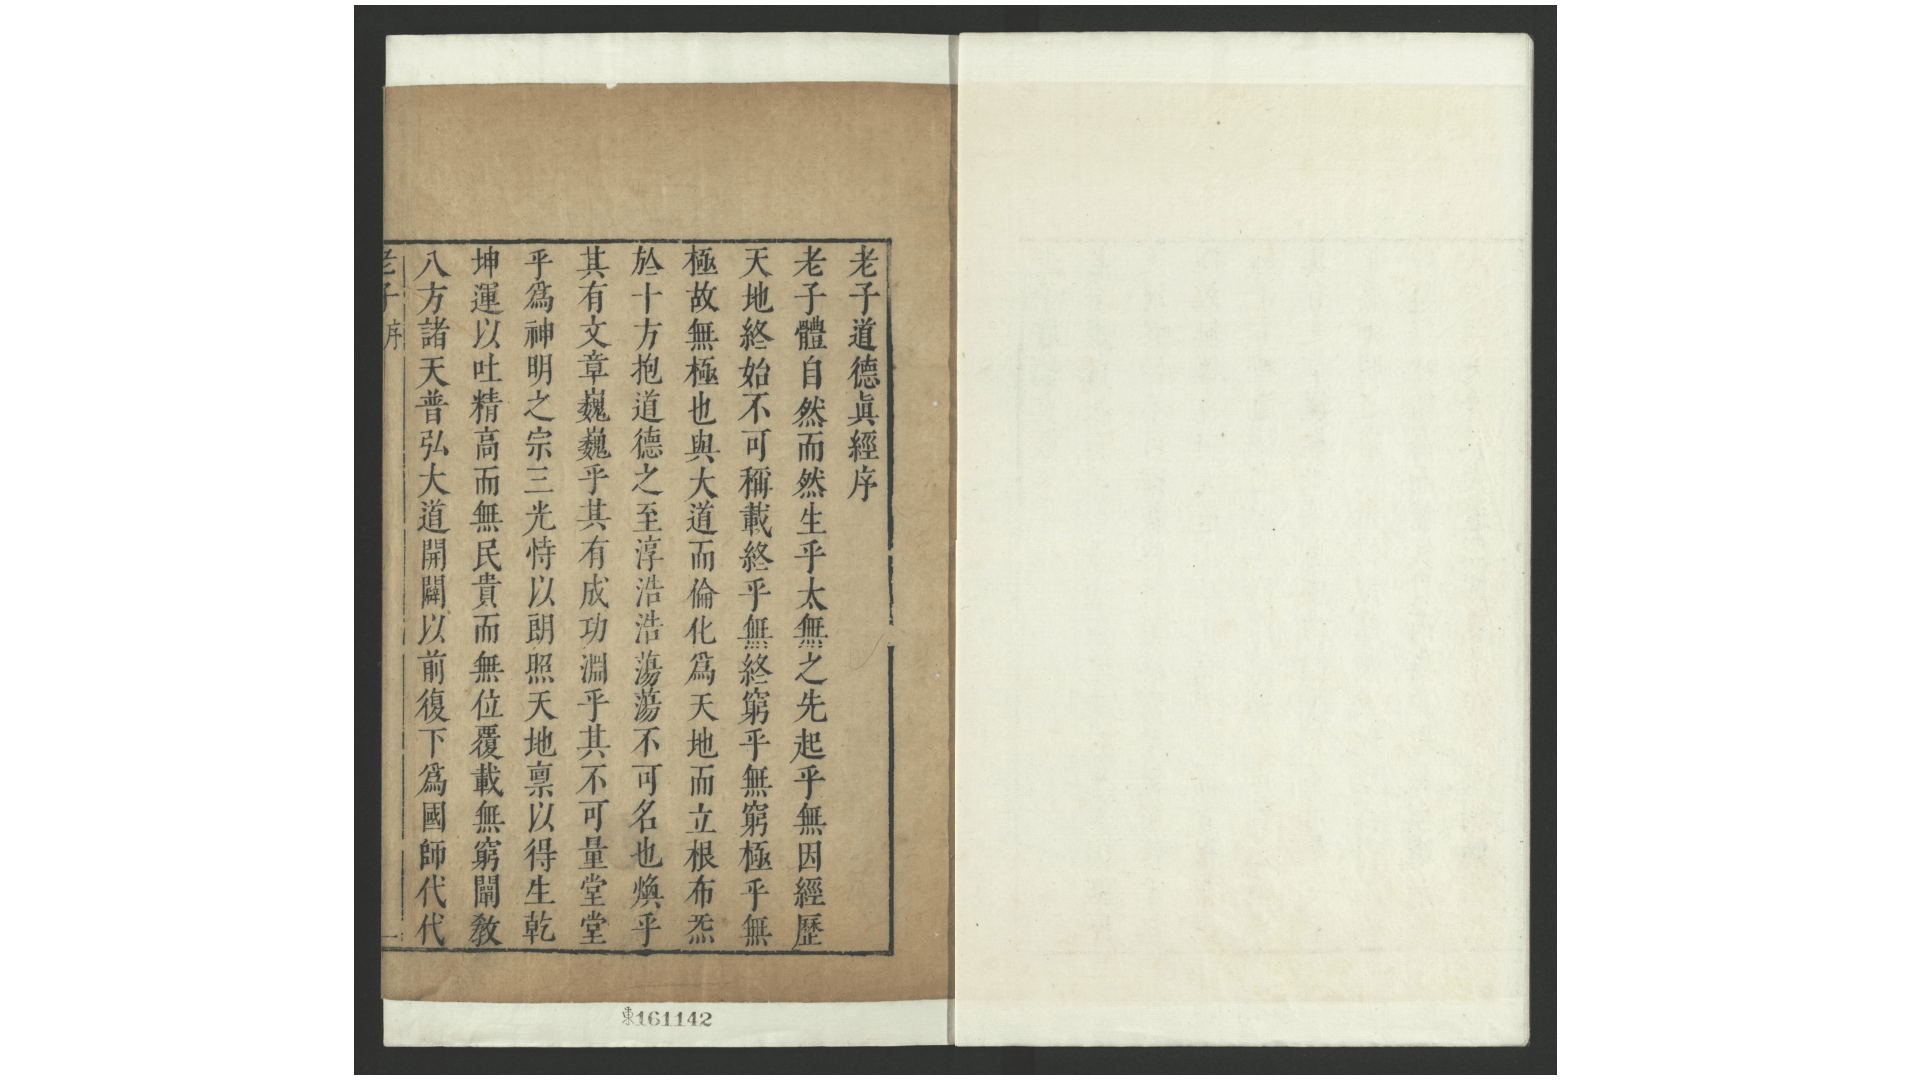 老子道德眞經序
老子體自然而然生乎太無之先起乎無因經歷
天地終始不可稱載終乎無終窮乎無窮極乎無
極故無極也與大道而倫化爲天地而立根布炁
於十方抱道德之至淳浩浩蕩蕩不可名也煥乎
其有文章巍巍乎其有成功淵乎其不可量堂堂
乎爲神明之宗三光恃以朗照天地禀以得生乾
坤運以吐精高而無民貴而無位覆載無窮闡教
八方諸天普弘大道開闢以前復下爲國師代代
老子序
一
東161142